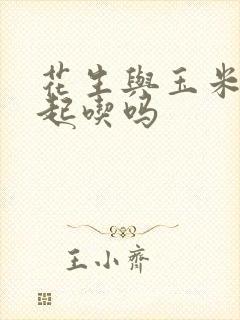 花生與玉米
起喫吗
王小齊